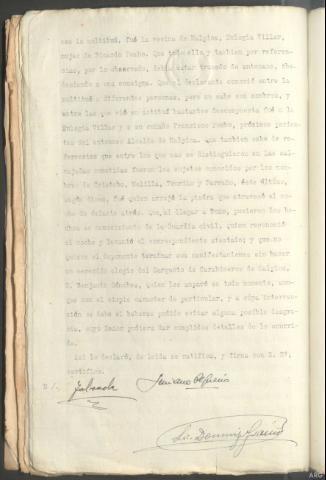 esa la multitud, fué la vecina de Malpica, Eulogia Villar,
mujer de Ricardo Pombo. Que todo ello y tambien por referen-
cias, por lo observado, debía estar tramado de antemano, obe-
deciendo a una consigna. Que el declarante conoció entre la
multitud a diferentes personas, pero no sabe sus nombres, y
entre las que vió en actitud bastante descompuesta fué a la
Eulogia Villar y a su cuñado Francisco Pombo, próximos parien-
tes del entonces Alcalde de Malpica. Que tambien sabe de re-
ferencias que entre los que mas se distinguieron en las sal-
vajadas cometidas fueron los sujetos conocidos por los nom-
bres de Cristobo, Melilla, y éste último,
según dicen, fué quien arrojó la piedra que atravesó el co-
che de delante atrás. Que, al llegar a Buño, pusieron los he-
chos en conocimiento de la Guardia civil, quien reconoció
el coche y levantó el correspondiente atestado; y que no
quiere el deponente terminar sus manifestaciones sin hacer
un merecido elogio del Sargento de Carabineros de Malpica,
D. Benjamin Sánchez, quien los amparó en todo momento, aun-
que con el simple carácter de particular, y a cuya interven-
ción se debe el haberse podido evitar alguna posible desgra-
cia, cuyo Señor podrá dar cumplidos detalles de lo ocurri-
do.
Así lo declaró, de leída se ratifica, y firma con S. Sª;
certifico.
ARG